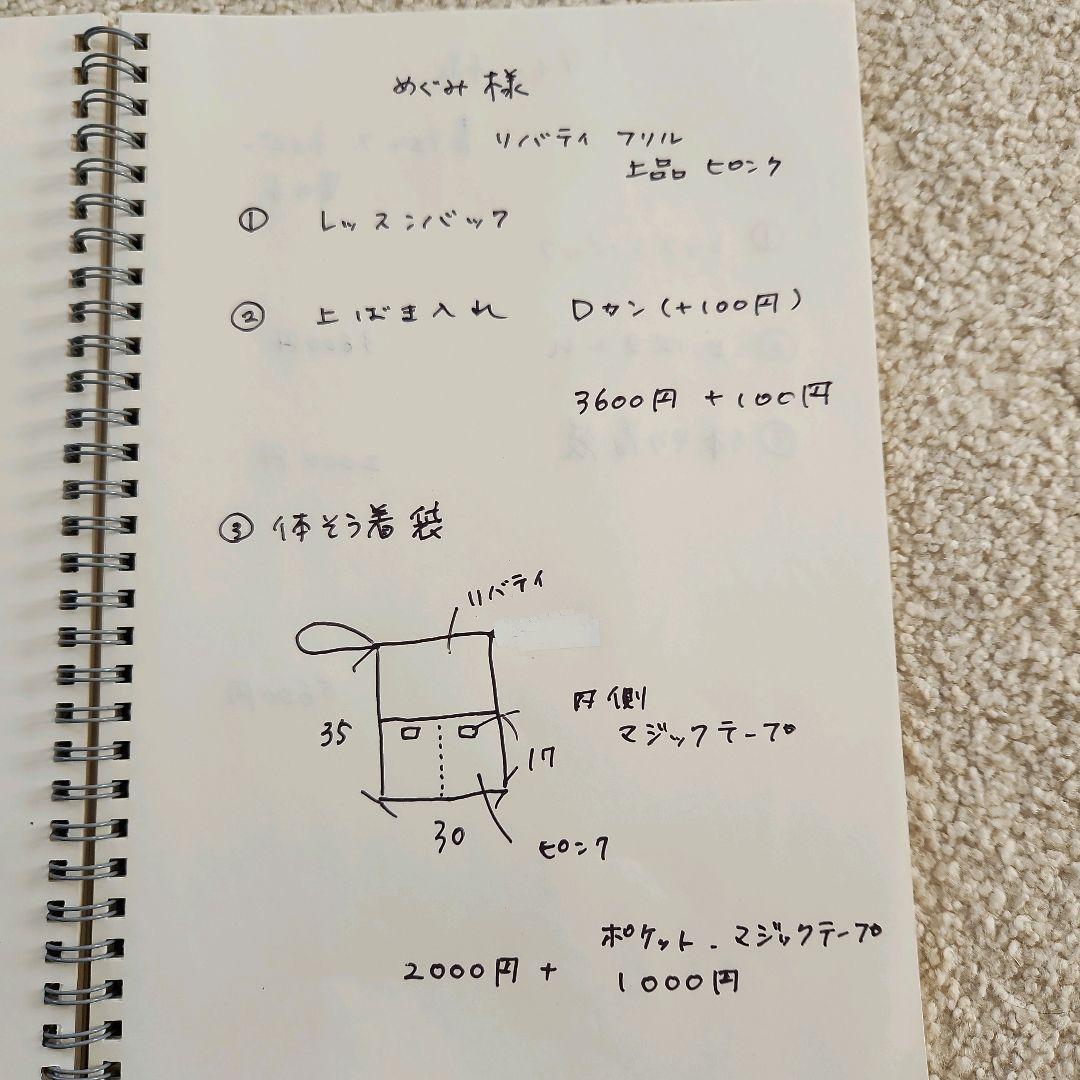 めぐみ 様
リバティ フリル
上品 ピンク
① レッスンバック
② 上ばき入れ Dカン(+100円)
3600円 +100円
③ 体そう着 袋
リバティ
35
内側
マジックテープ
17
30
ピンク
ポケット、マジックテープ
2000円 + 1000円